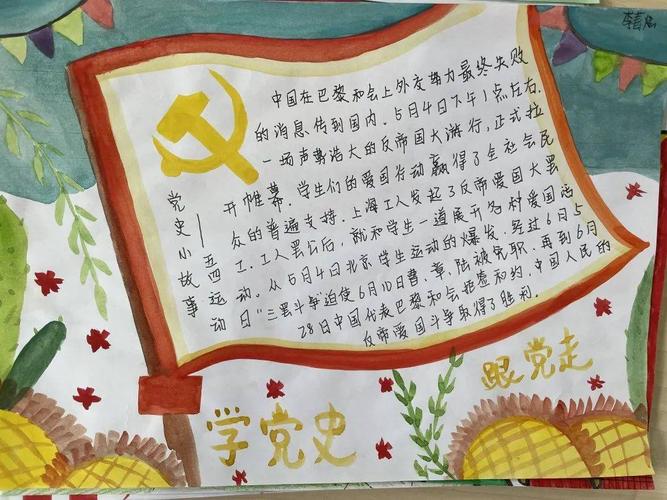 中国在巴黎和会上外交努力最终失败
的消息传到国内. 5月4日下午1点左右.
一场声势浩大的反帝国大游行, 正式拉
开帷幕. 学生们的爱国行动赢得了全社会民
众的普遍支持. 上海工人发起了反帝爱国大罢
工. 工人罢公后, 就和学生一道展开各种爱国活
动. 从5月4日北京学生运动的爆发. 经过6月5
日"三罢斗争迫使6月10日曹. 章. 陆被免职. 再到6月
28日中国代表巴黎和会拒签和约. 中国人民的
反帝爱国斗争取得了胜利.
党史小故事
——五四运动
学党史
跟党走